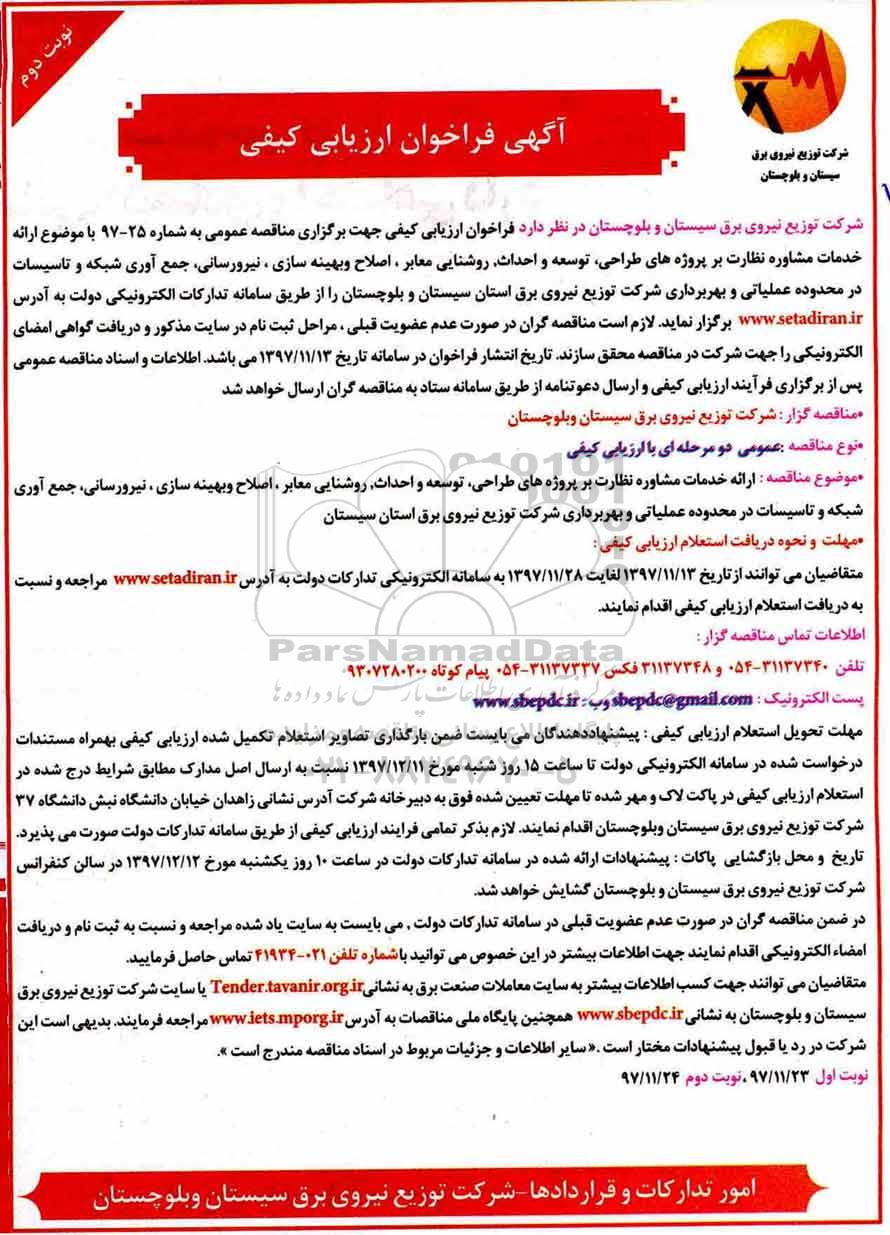 نوبت دوم
شرکت توزیع نیروی برق
سیستان و بلوچستان
آگهی فراخوان ارزیابی کیفی
شرکت توزیع نیروی برق سیستان و بلوچستان در نظر دارد فراخوان ارزیابی کیفی جهت برگزاری مناقصه عمومی به شماره ۲۵-۹۷ با موضوع ارائه
خدمات مشاوره نظارت بر پروژه های طراحی، توسعه و احداث, روشنایی معابر ، اصلاح وبهینه سازی ، نیرورسانی، جمع آوری شبکه و تاسیسات
در محدوده عملیاتی و بهربرداری شرکت توزیع نیروی برق استان سیستان و بلوچستان را از طریق سامانه تدارکات الکترونیکی دولت به آدرس
www.setadiran.ir برگزار نماید. لازم است مناقصه گران در صورت عدم عضویت قبلی ، مراحل ثبت نام در سایت مذکور و دریافت گواهی امضای
الکترونیکی را جهت شرکت در مناقصه محقق سازند. تاریخ انتشار فراخوان در سامانه تاریخ ۱۳۹۷/۱۱/۱۳ می باشد. اطلاعات و اسناد مناقصه عمومی
پس از برگزاری فرآیند ارزیابی کیفی و ارسال دعوتنامه از طریق سامانه ستاد به مناقصه گران ارسال خواهد شد
•مناقصه گزار : شرکت توزیع نیروی برق سیستان وبلوچستان
•نوع مناقصه :عمومی دو مرحله ای با ارزیابی کیفی
•موضوع مناقصه : ارائه خدمات مشاوره نظارت بر پروژه های طراحی، توسعه و احداث, روشنایی معابر ، اصلاح وبهینه سازی ، نیرورسانی، جمع آوری
شبکه و تاسیسات در محدوده عملیاتی و بهربرداری شرکت توزیع نیروی برق استان سیستان
•مهلت و نحوه دریافت استعلام ارزیابی کیفی :
متقاضیان می توانند از تاریخ ۱۳۹۷/۱۱/۱۳ لغایت ۱۳۹۷/۱۱/۲۸ به سامانه الکترونیکی تدارکات دولت به آدرس www.setadiran.ir مراجعه و نسبت
به دریافت استعلام ارزیابی کیفی اقدام نمایند.
اطلاعات تماس مناقصه گزار :
تلفن ۳۱۱۳۷۳۴۰-۰۵۴ و ۳۱۱۳۷۳۴۸ فکس ۳۱۱۳۷۳۳۷-۰۵۴ پیام کوتاه ۹۳۰۷۲۸۰۲۰۰۰
پست الکترونیک : sbepdc@gmail.com وب : www.sbepdc.ir
مهلت تحویل استعلام ارزیابی کیفی : پیشنهاددهندگان می بایست ضمن بارگذاری تصاویر استعلام تکمیل شده ارزیابی کیفی بهمراه مستندات
درخواست شده در سامانه الکترونیکی دولت تا ساعت ۱۵ روز شنبه مورخ ۱۳۹۷/۱۲/۱۱ نسبت به ارسال اصل مدارک مطابق شرایط درج شده در
استعلام ارزیابی کیفی در پاکت لاک و مهر شده تا مهلت تعیین شده فوق به دبیرخانه شرکت آدرس نشانی زاهدان خیابان دانشگاه نبش دانشگاه ۳۷
شرکت توزیع نیروی برق سیستان وبلوچستان اقدام نمایند. لازم بذکر تمامی فرایند ارزیابی کیفی از طریق سامانه تدارکات دولت صورت می پذیرد.
تاریخ و محل بازگشایی پاکات : پیشنهادات ارائه شده در سامانه تدارکات دولت در ساعت ۱۰ روز یکشنبه مورخ ۱۳۹۷/۱۲/۱۲ در سالن کنفرانس
شرکت توزیع نیروی برق سیستان و بلوچستان گشایش خواهد شد.
در ضمن مناقصه گران در صورت عدم عضویت قبلی در سامانه تدارکات دولت , می بایست به سایت یاد شده مراجعه و نسبت به ثبت نام و دریافت
امضاء الکترونیکی اقدام نمایند جهت اطلاعات بیشتر در این خصوص می توانید با شماره تلفن ۰۲۱-۴۱۹۳۴ تماس حاصل فرمایید.
متقاضیان می توانند جهت کسب اطلاعات بیشتر به سایت معاملات صنعت برق به نشانی Tender.tavanir.org.ir یا سایت شرکت توزیع نیروی برق
سیستان و بلوچستان به نشانی www.sbepdc.ir همچنین پایگاه ملی مناقصات به آدرس www.iets.mporg.ir مراجعه فرمایند. بدیهی است این
شرکت در رد یا قبول پیشنهادات مختار است .« سایر اطلاعات و جزئیات مربوط در اسناد مناقصه مندرج است ».
نوبت اول ۹۷/۱۱/۲۳ ،نوبت دوم ۹۷/۱۱/۲۴
امور تدارکات و قراردادها-شرکت توزیع نیروی برق سیستان وبلوچستان
ParsNamadData